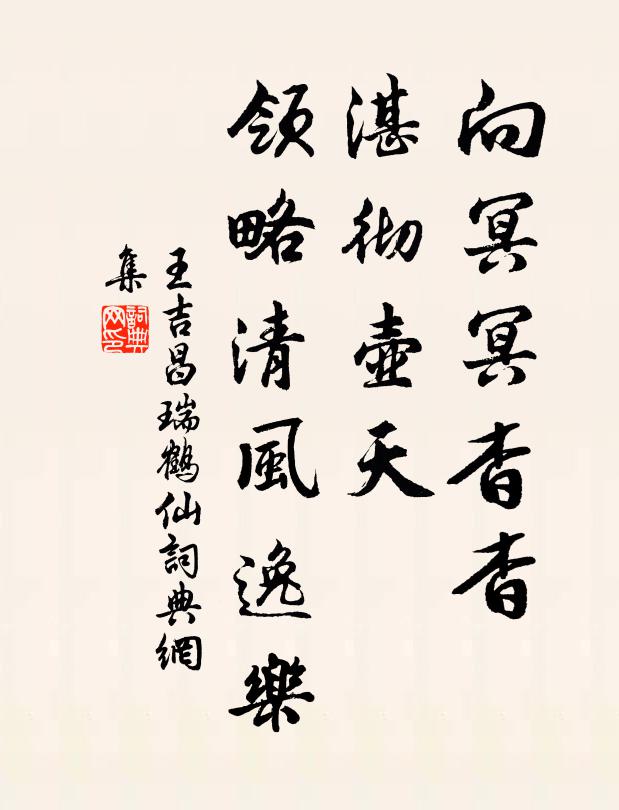 向冥冥杳杳
湛彻壺天
領略清風逸樂
王吉昌瑞鶴仙詞典網
集
詞典网印